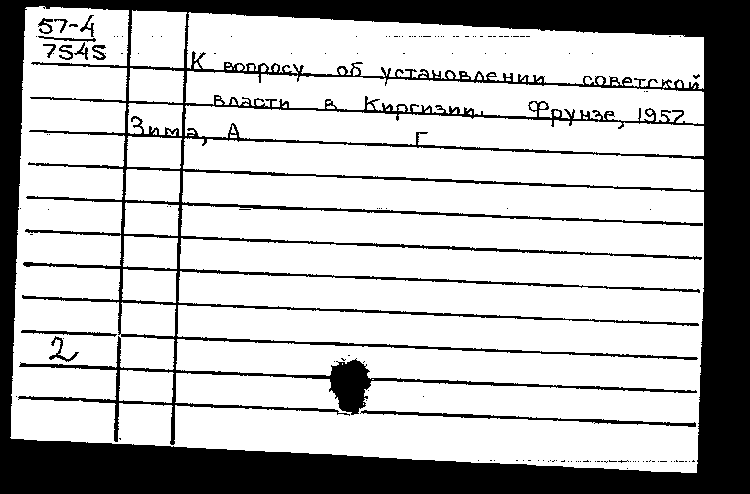 57-4
7545
К вопросу об установлении советской
власти в Киргизии. Фрунзе, 1957
Зима, А Г
2